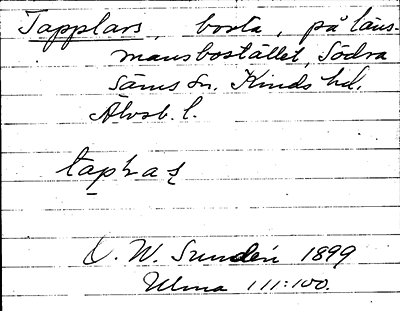 Tapplars, borta, på läns-
mansbostället, Södra
Säms sn. Kinds hd.
Älvsb. l.
O. W. Sundén 1899
Ulma 111:100.